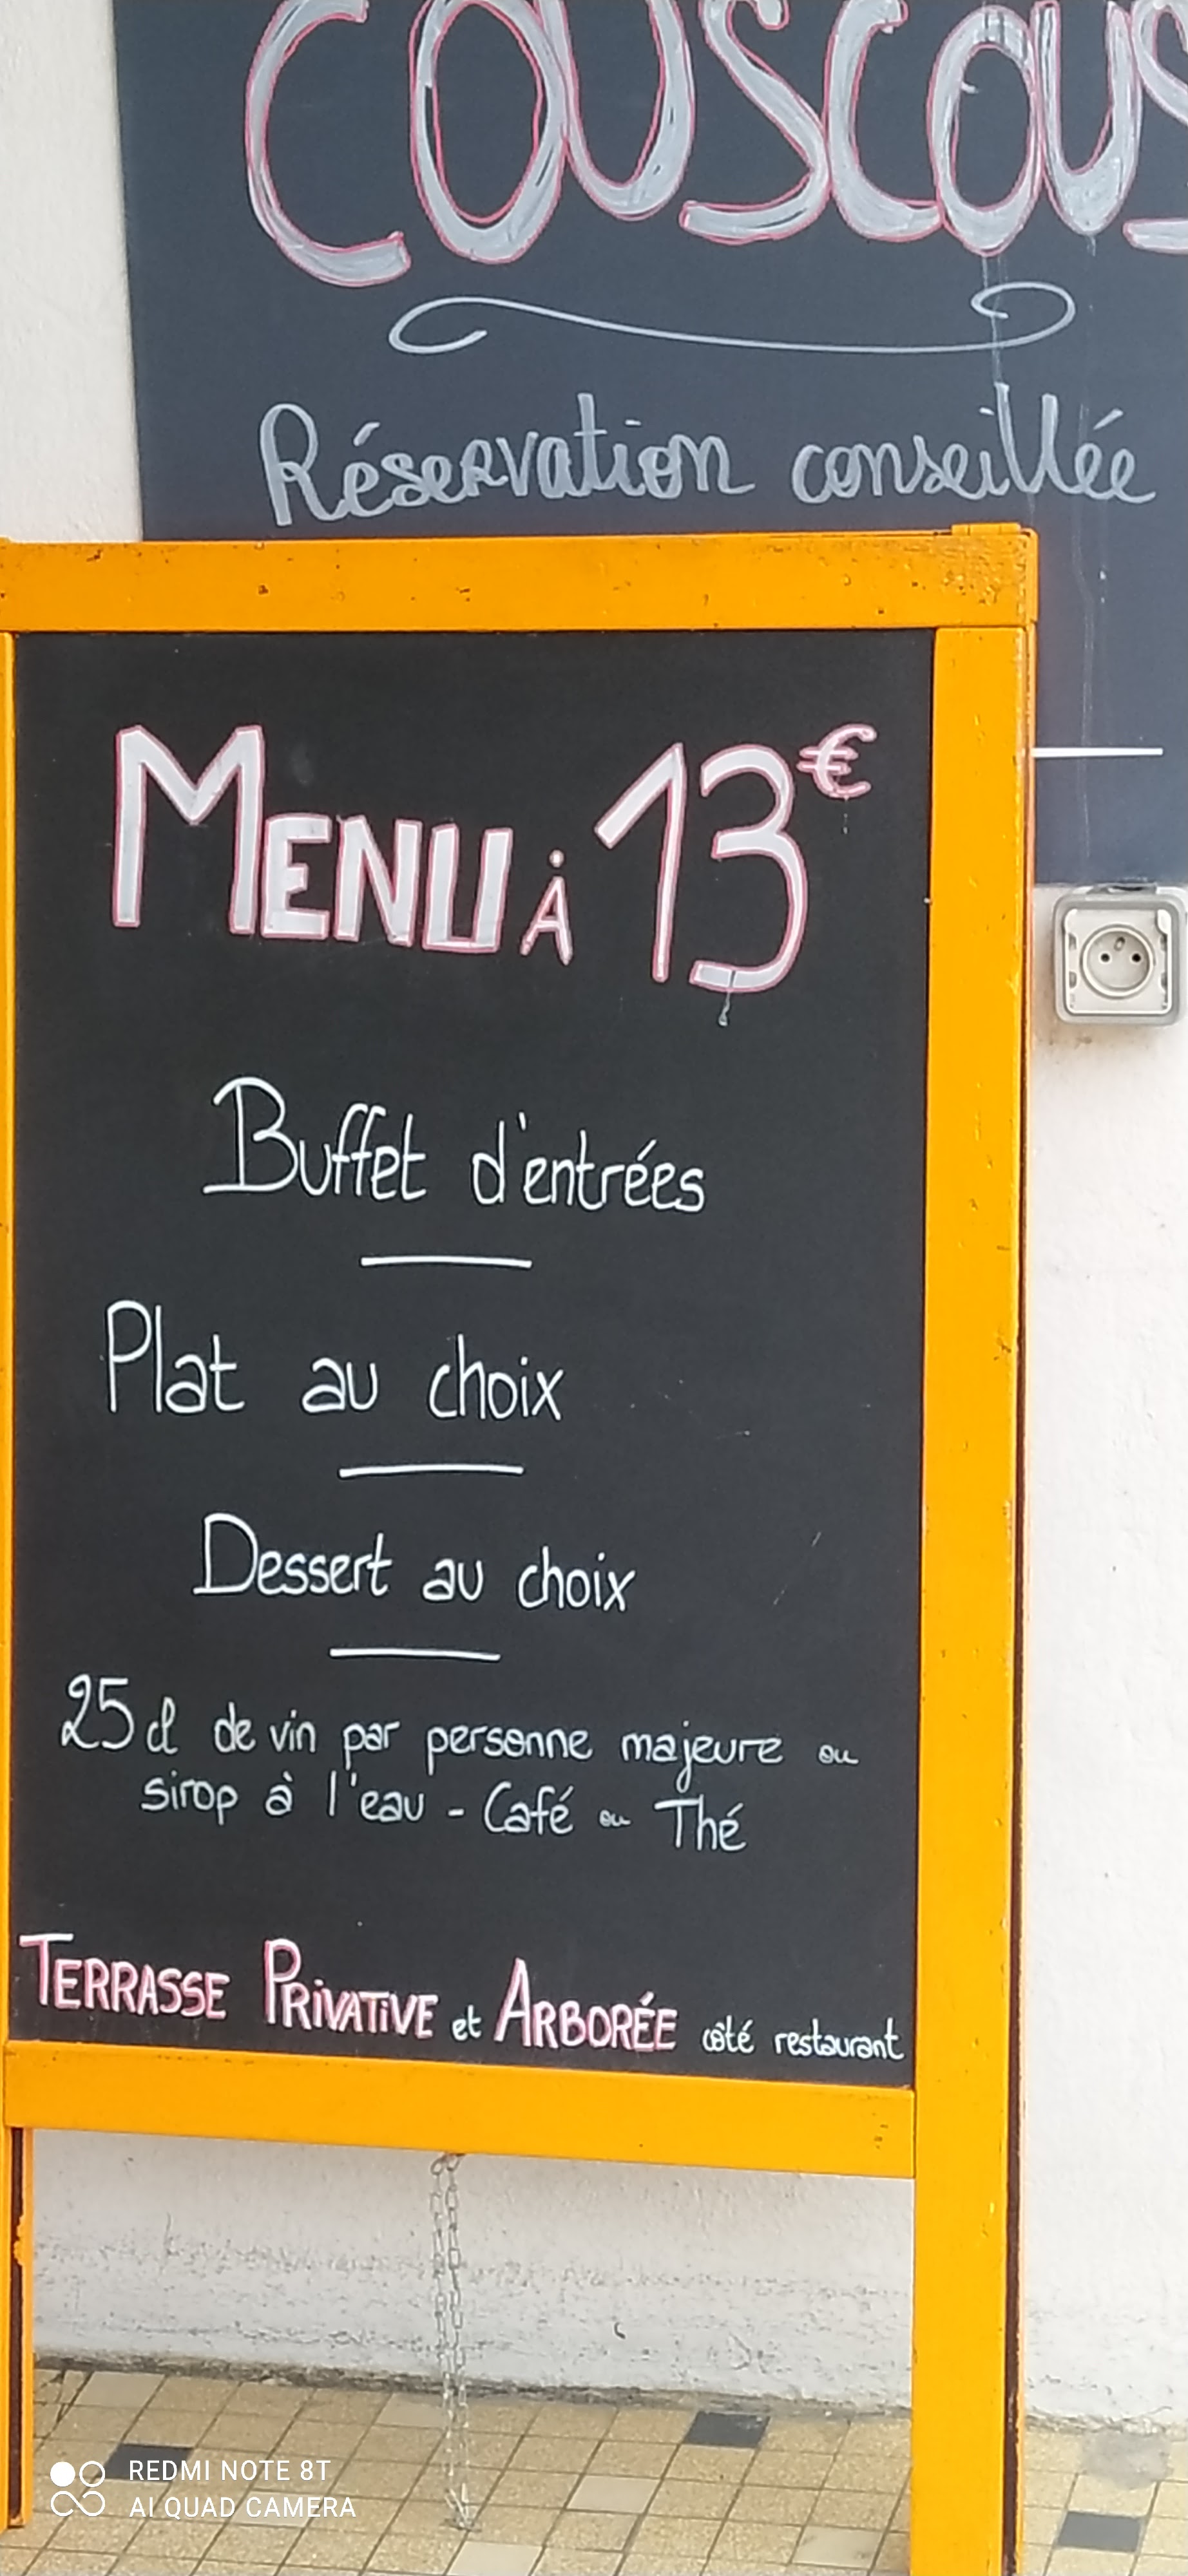 COUSCOUS
Réservation conseillée
MENU À 13€
Buffet d'entrées
Plat au choix
Dessert au choix
25 cl de vin par personne majeure ou
sirop à l'eau - Café ou Thé
TERRASSE PRIVATIVE et ARBORÉE côté restaurant
REDMI NOTE 8T
AI QUAD CAMERA